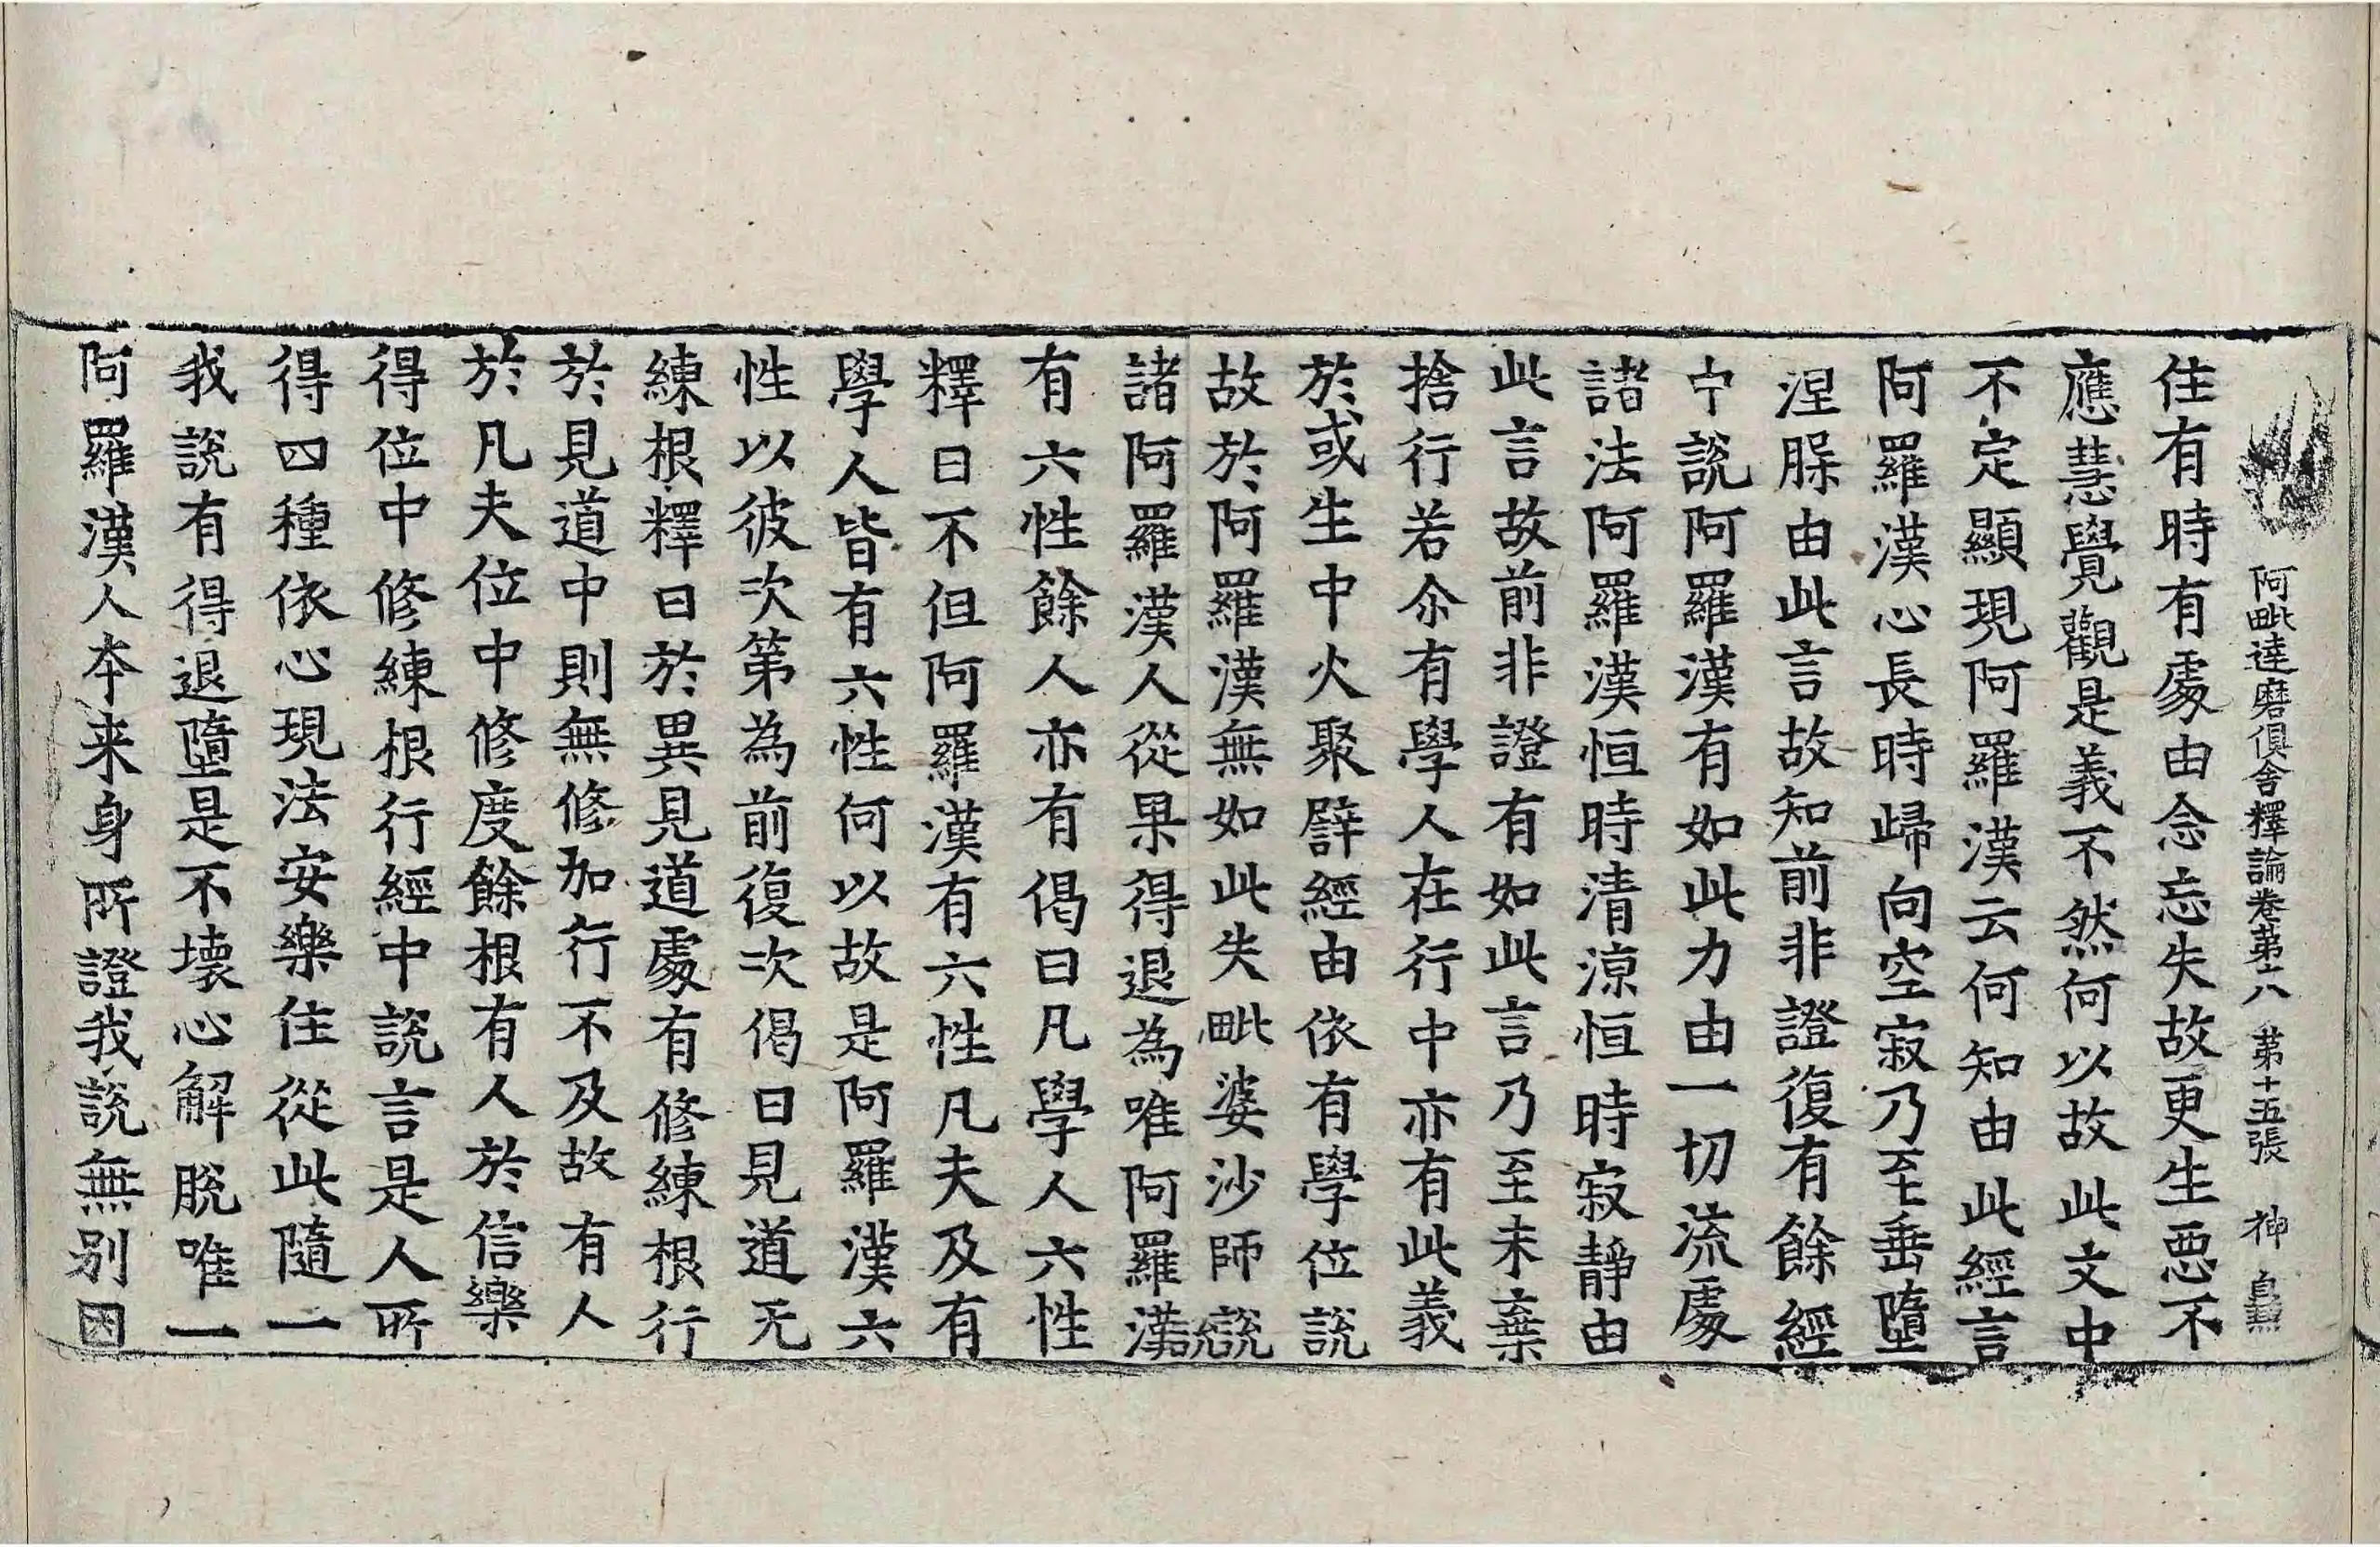 阿毗達磨俱舍釋論卷第十八 第十五張 神
住有時有處由念忘失故更生惡不
應慧覺觀是義不然何以故此文中
不定顯現阿羅漢云何知由此經言
阿羅漢心長時歸向空寂乃至垂墮
涅脲由此言故知前非證復有餘經
中說阿羅漢有如此力由一切流處
諸法阿羅漢恒時清涼恒時寂靜由
此言故前非證有如此言乃至未棄
捨行若尒有學人在行中亦有此義
於或生中火聚譬經由依有學位說
故於阿羅漢無如此失毗婆沙師說
諸阿羅漢人從果得退為唯阿羅漢
有六性餘人亦有偈曰凡學人六性
釋曰不但阿羅漢有六性凡夫及有
學人皆有六性何以故是阿羅漢六
性以彼次第為前復次偈曰見道无
練根釋曰於異見道處有修練根行
於見道中則無修加行不及故有人
於凡夫位中修度餘根有人於信樂
得位中修練根行經中說言是人所
得四種依心現法安樂住從此隨一
我說有得退墮是不壞心解脫唯一
阿羅漢人本来身所證我說無別因